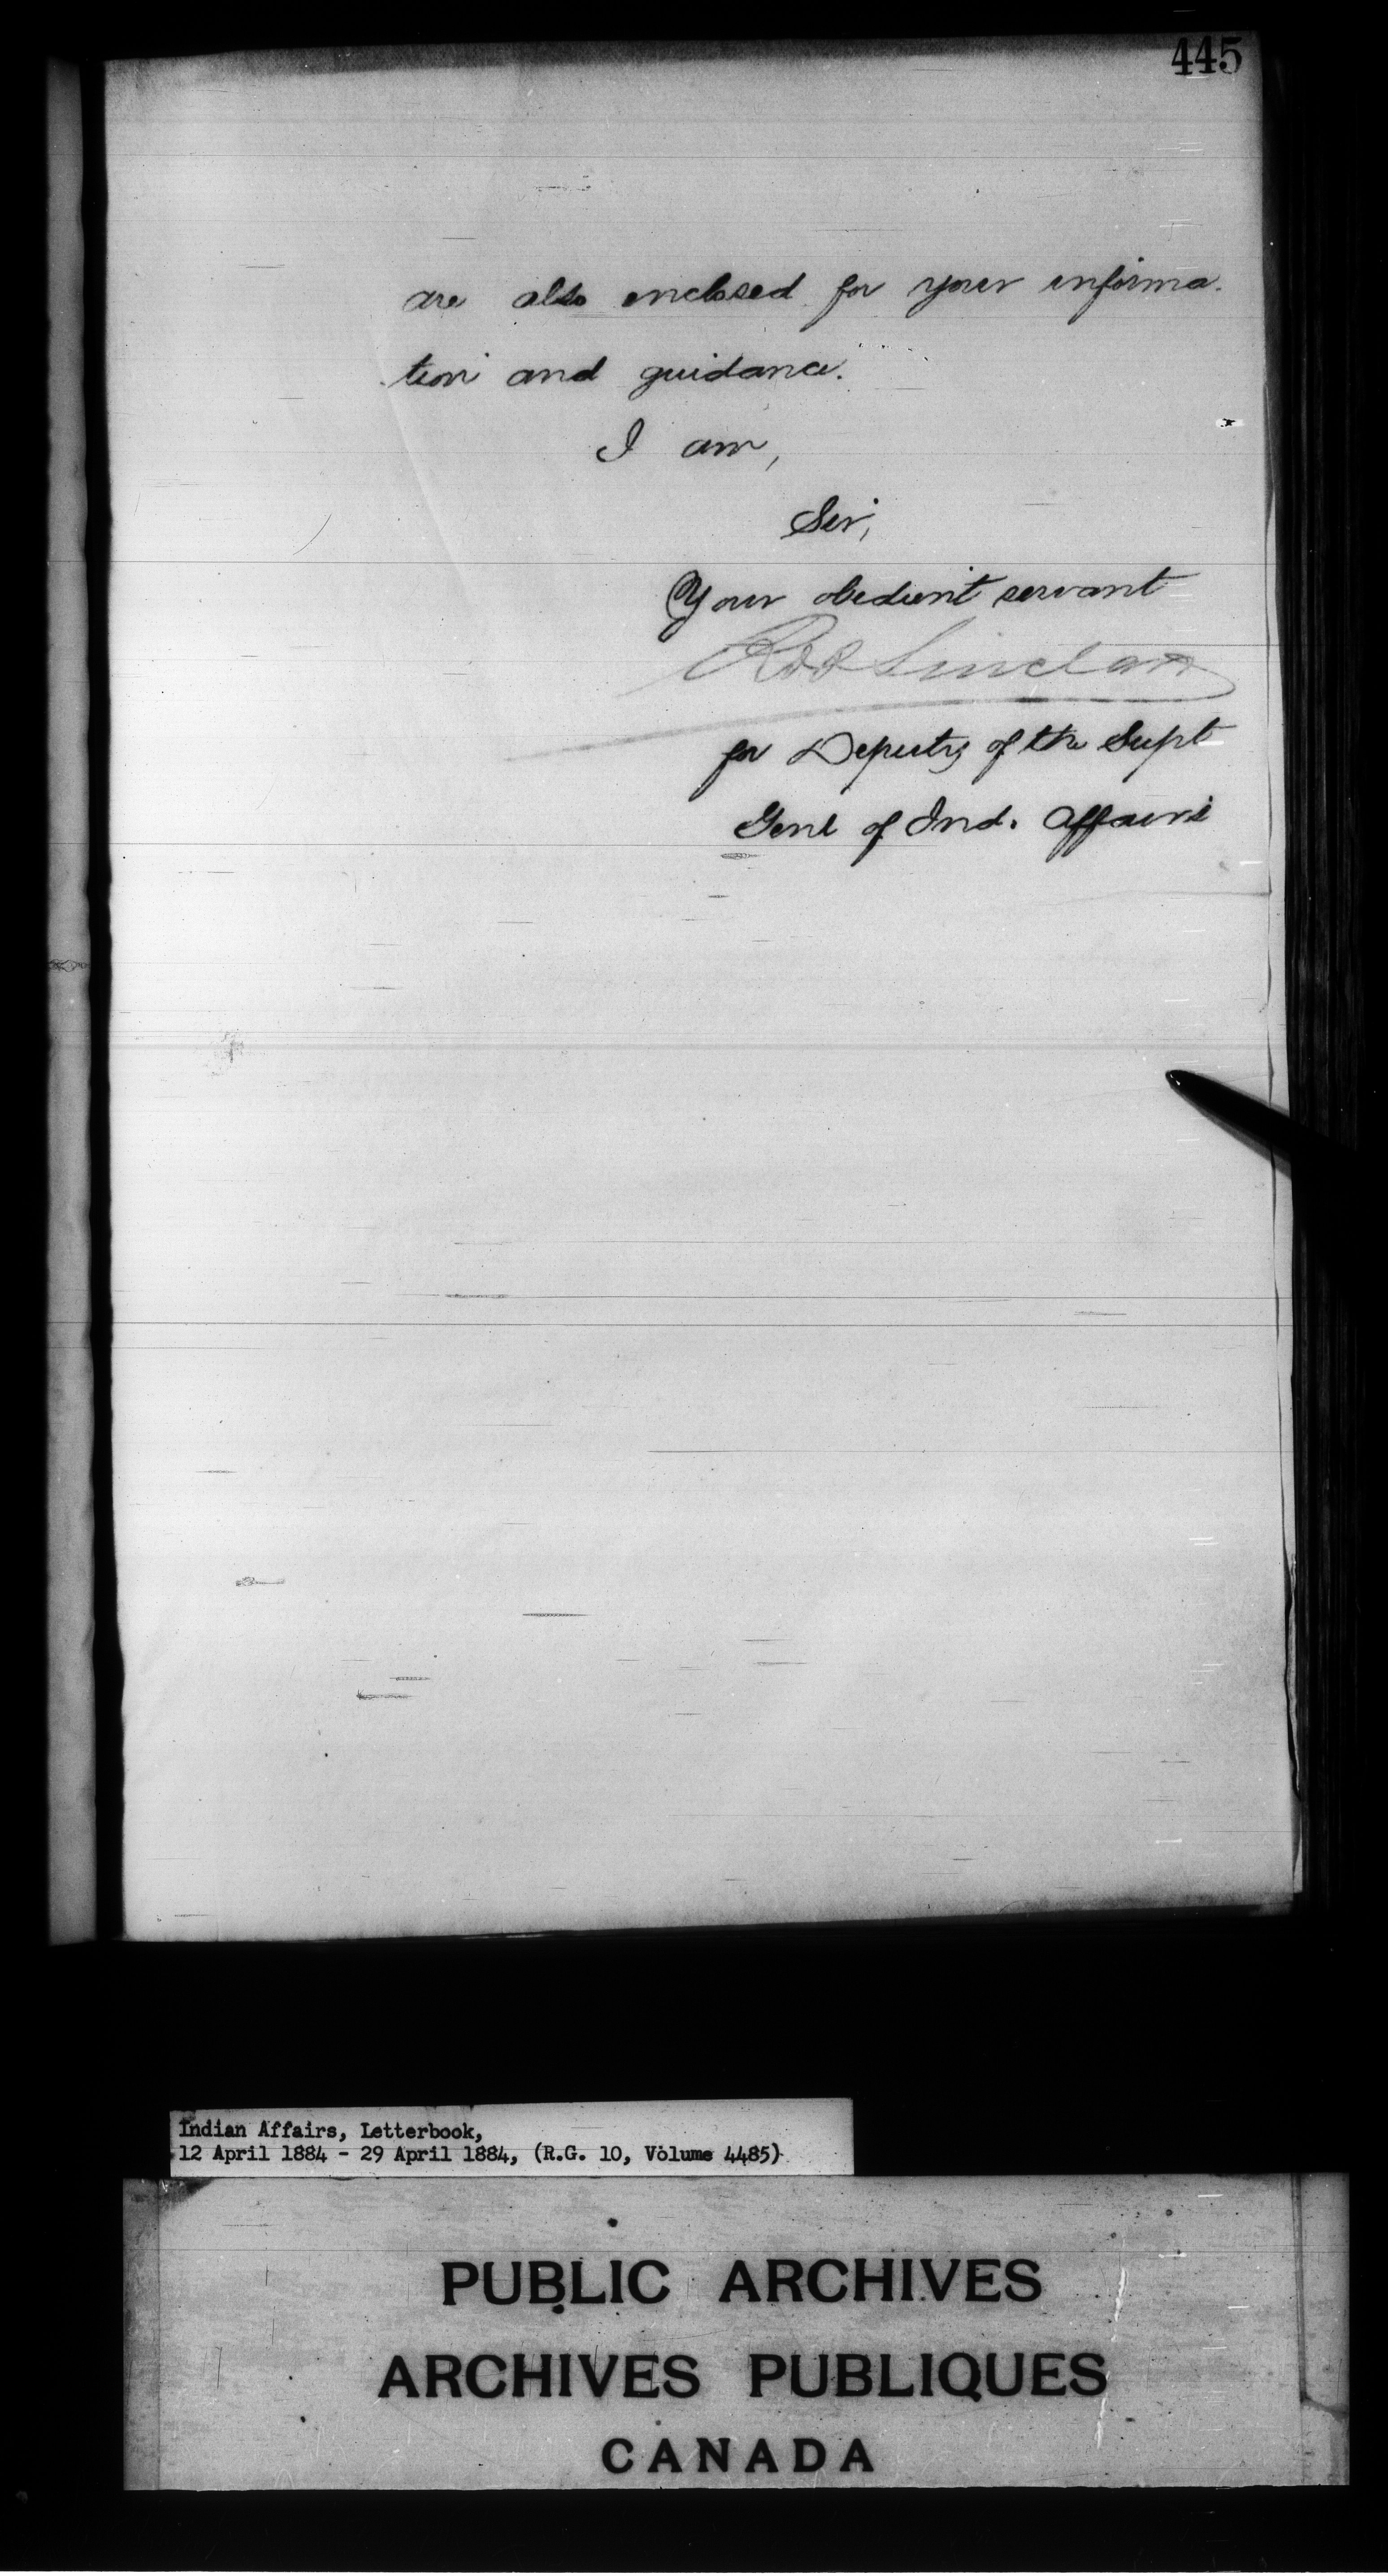 445
are also enclosed for your informa-
tion and guidance.
I am,
Sir,
Your obedient servant
Rob Sinclair
for Deputy of the Supt
Genl of Ind. Affairs
Indian Affairs, Letterbook,
12 April 1884 - 29 April 1884, (R.G. 10, Volume 4485)
PUBLIC ARCHIVES
ARCHIVES PUBLIQUES
CANADA